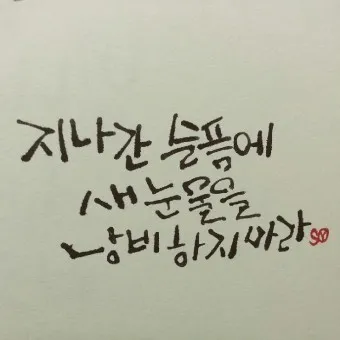 지나간 슬픔에
새 눈물을
낭비하지마라